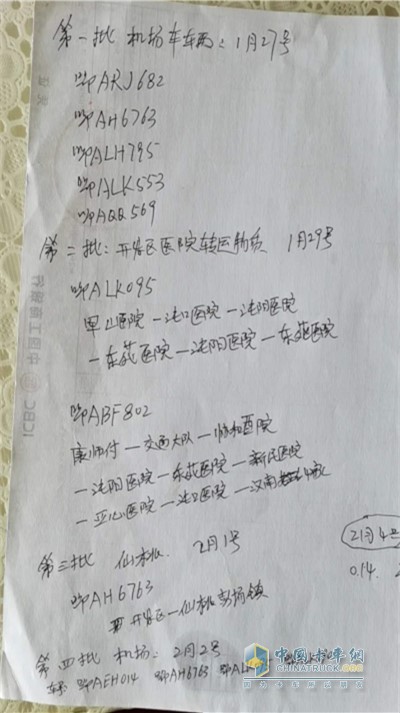 第一批 机场车车辆: 1月27号
鄂ARJ682
鄂AH6763
鄂ALH795
鄂ALK553
鄂AQQ569
第二批: 开发区医院转运物资 1月29号
鄂ALK095
医院 — 沌口医院 — 沌阳医院
— 东荻医院 — 沌阳医院 — 东荻医院
鄂ABF802
康师付 — 交通大队 — 协和医院
— 沌阳医院 — 东荻医院 — 新民医院
— 亚心医院 — 沌口医院 — 汉南
第三批 仙桃. 2月1号
2月4号
0.14.
鄂AH6763
开发区 — 仙桃彭场镇
第四批 机场: 2月2号
鄂AEH014 鄂AH6763 鄂AL
中国卡车网
CHINATRUCK.ORG
ICBC 中国工商银行